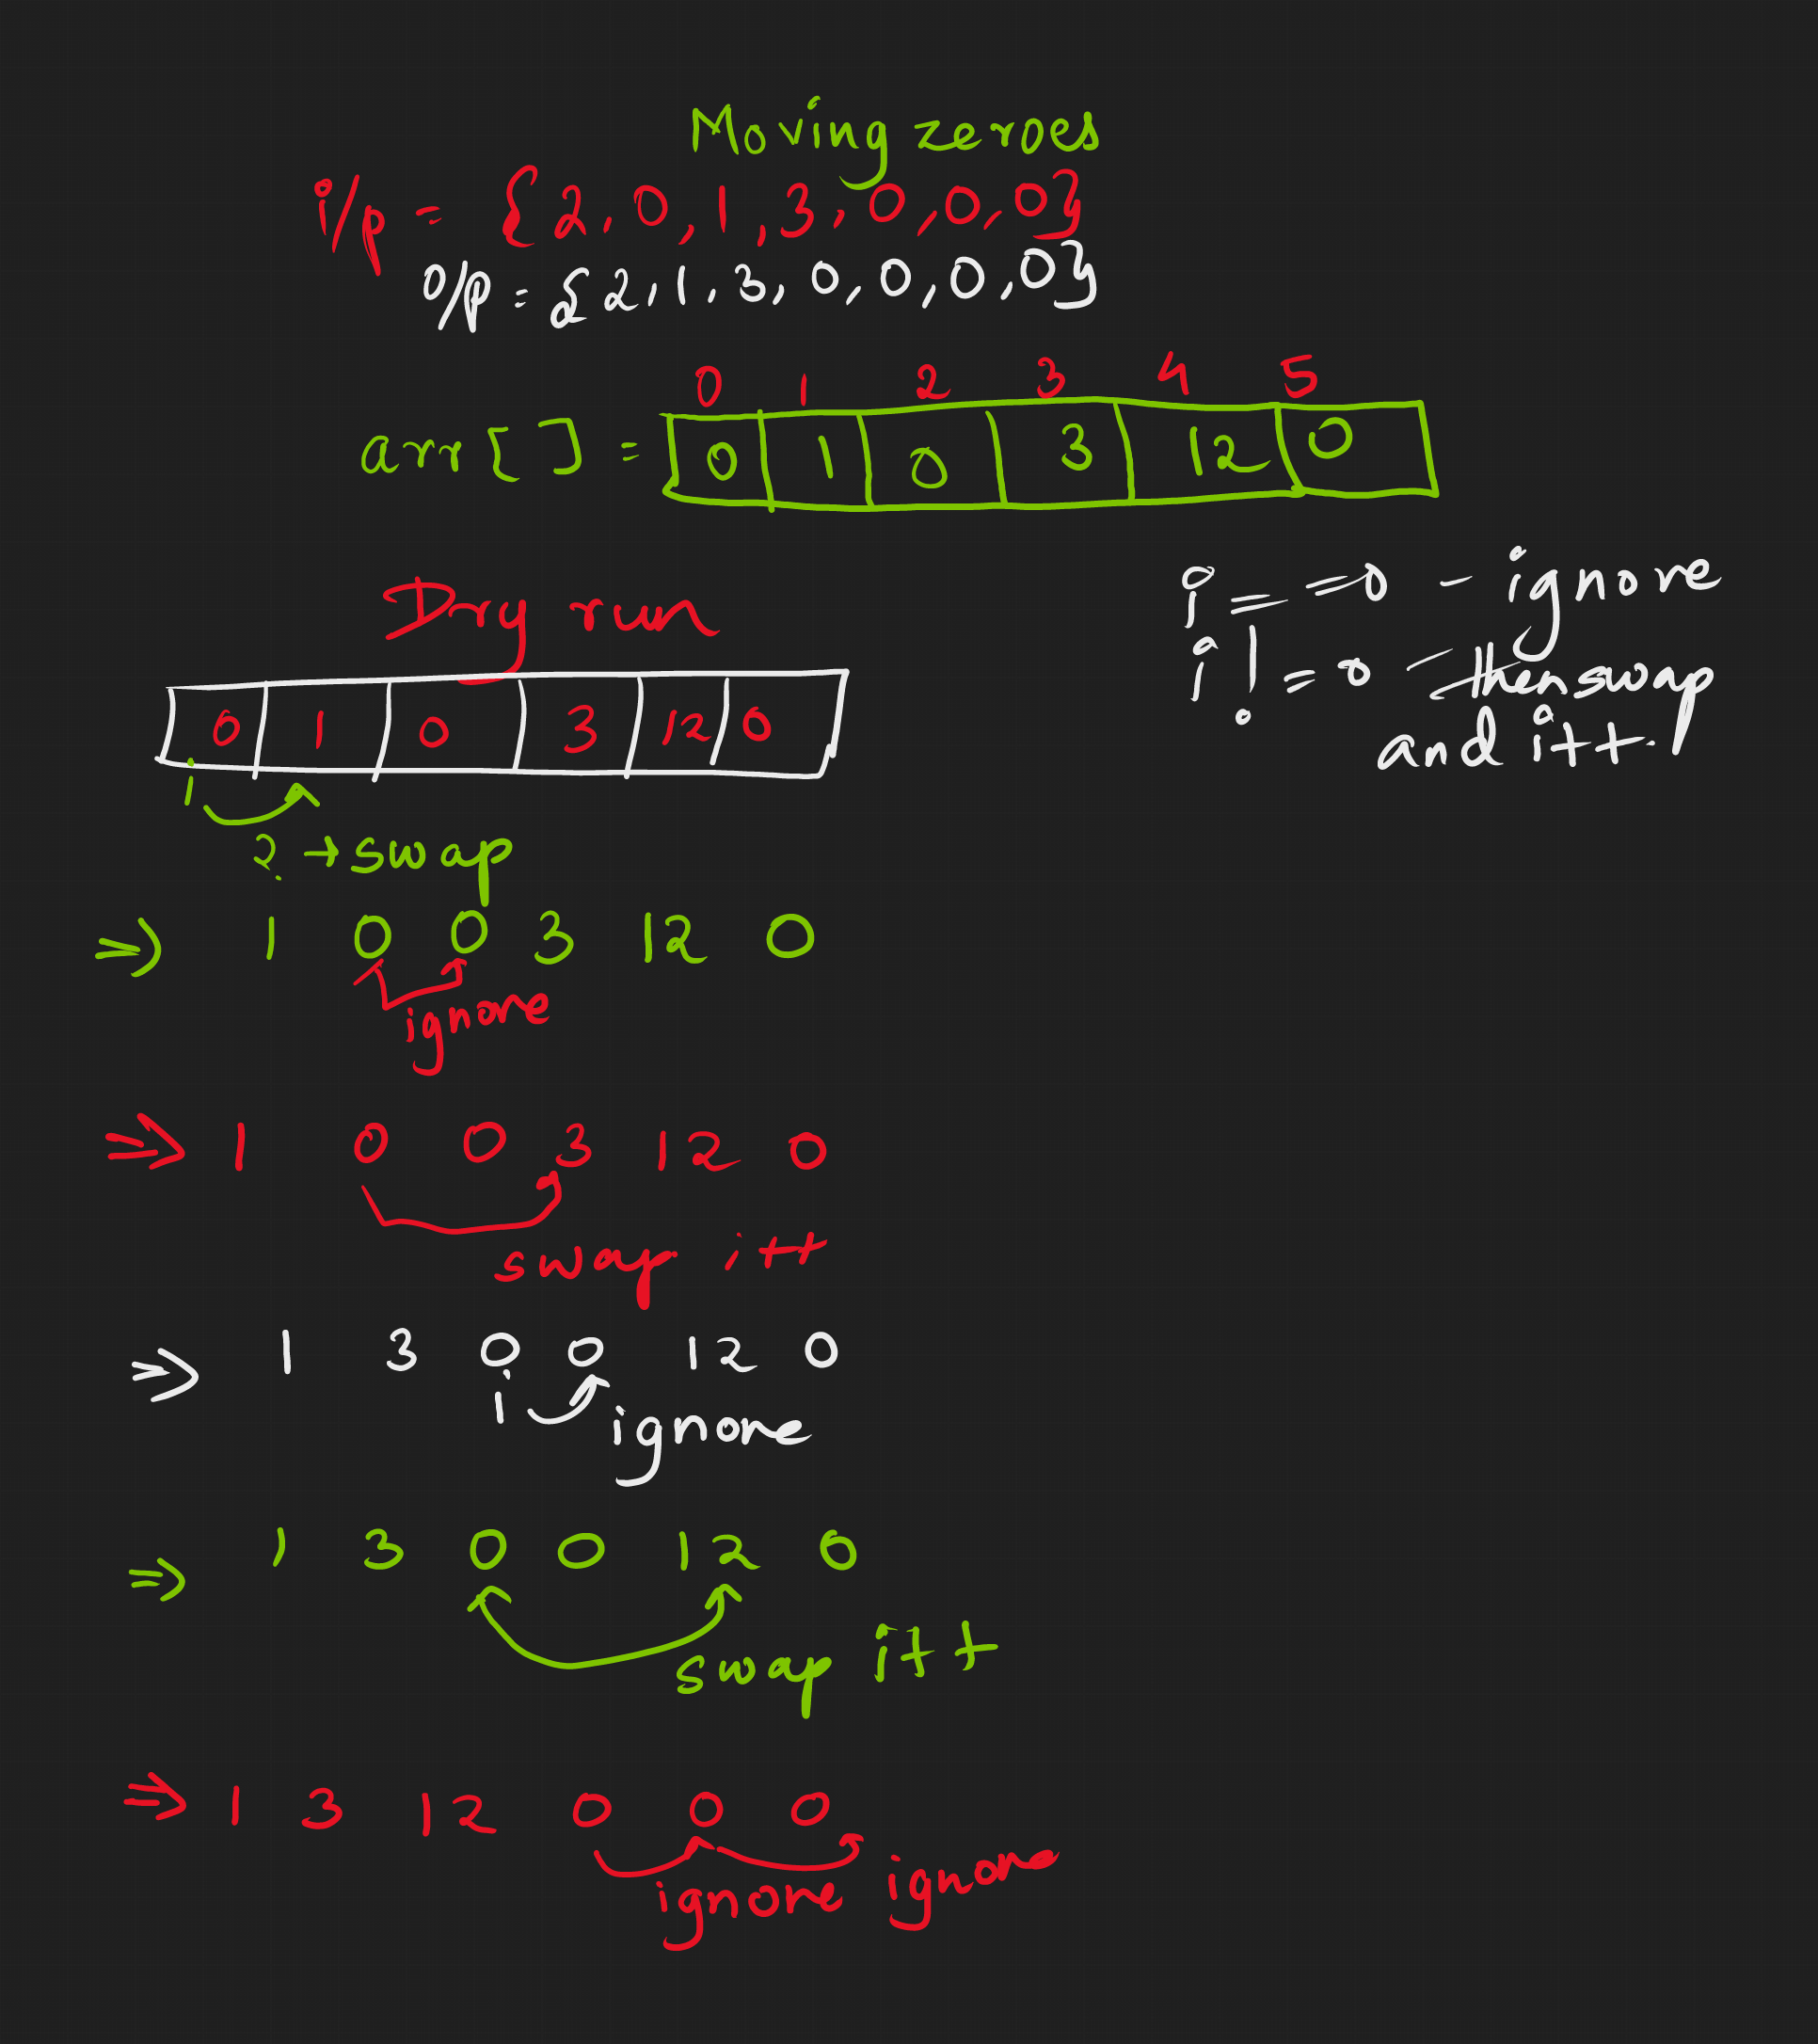 Moving zeroes
i/p = {2,0,1,3,0,0,0}
o/p = {2,1,3,0,0,0,0}
0 1 2 3 4 5
arr[] = 0 1 0 3 12 0
i = =0 - ignore
i != 0 - then swap
and i++.
Dry run
0 1 0 3 12 0
i
? → swap
⇒ 1 0 0 3 12 0
ignore
⇒ 1 0 0 3 12 0
swap i++
⇒ 1 3 0 0 12 0
i ignore
⇒ 1 3 0 0 12 0
swap i++
⇒ 1 3 12 0 0 0
ignore ignore